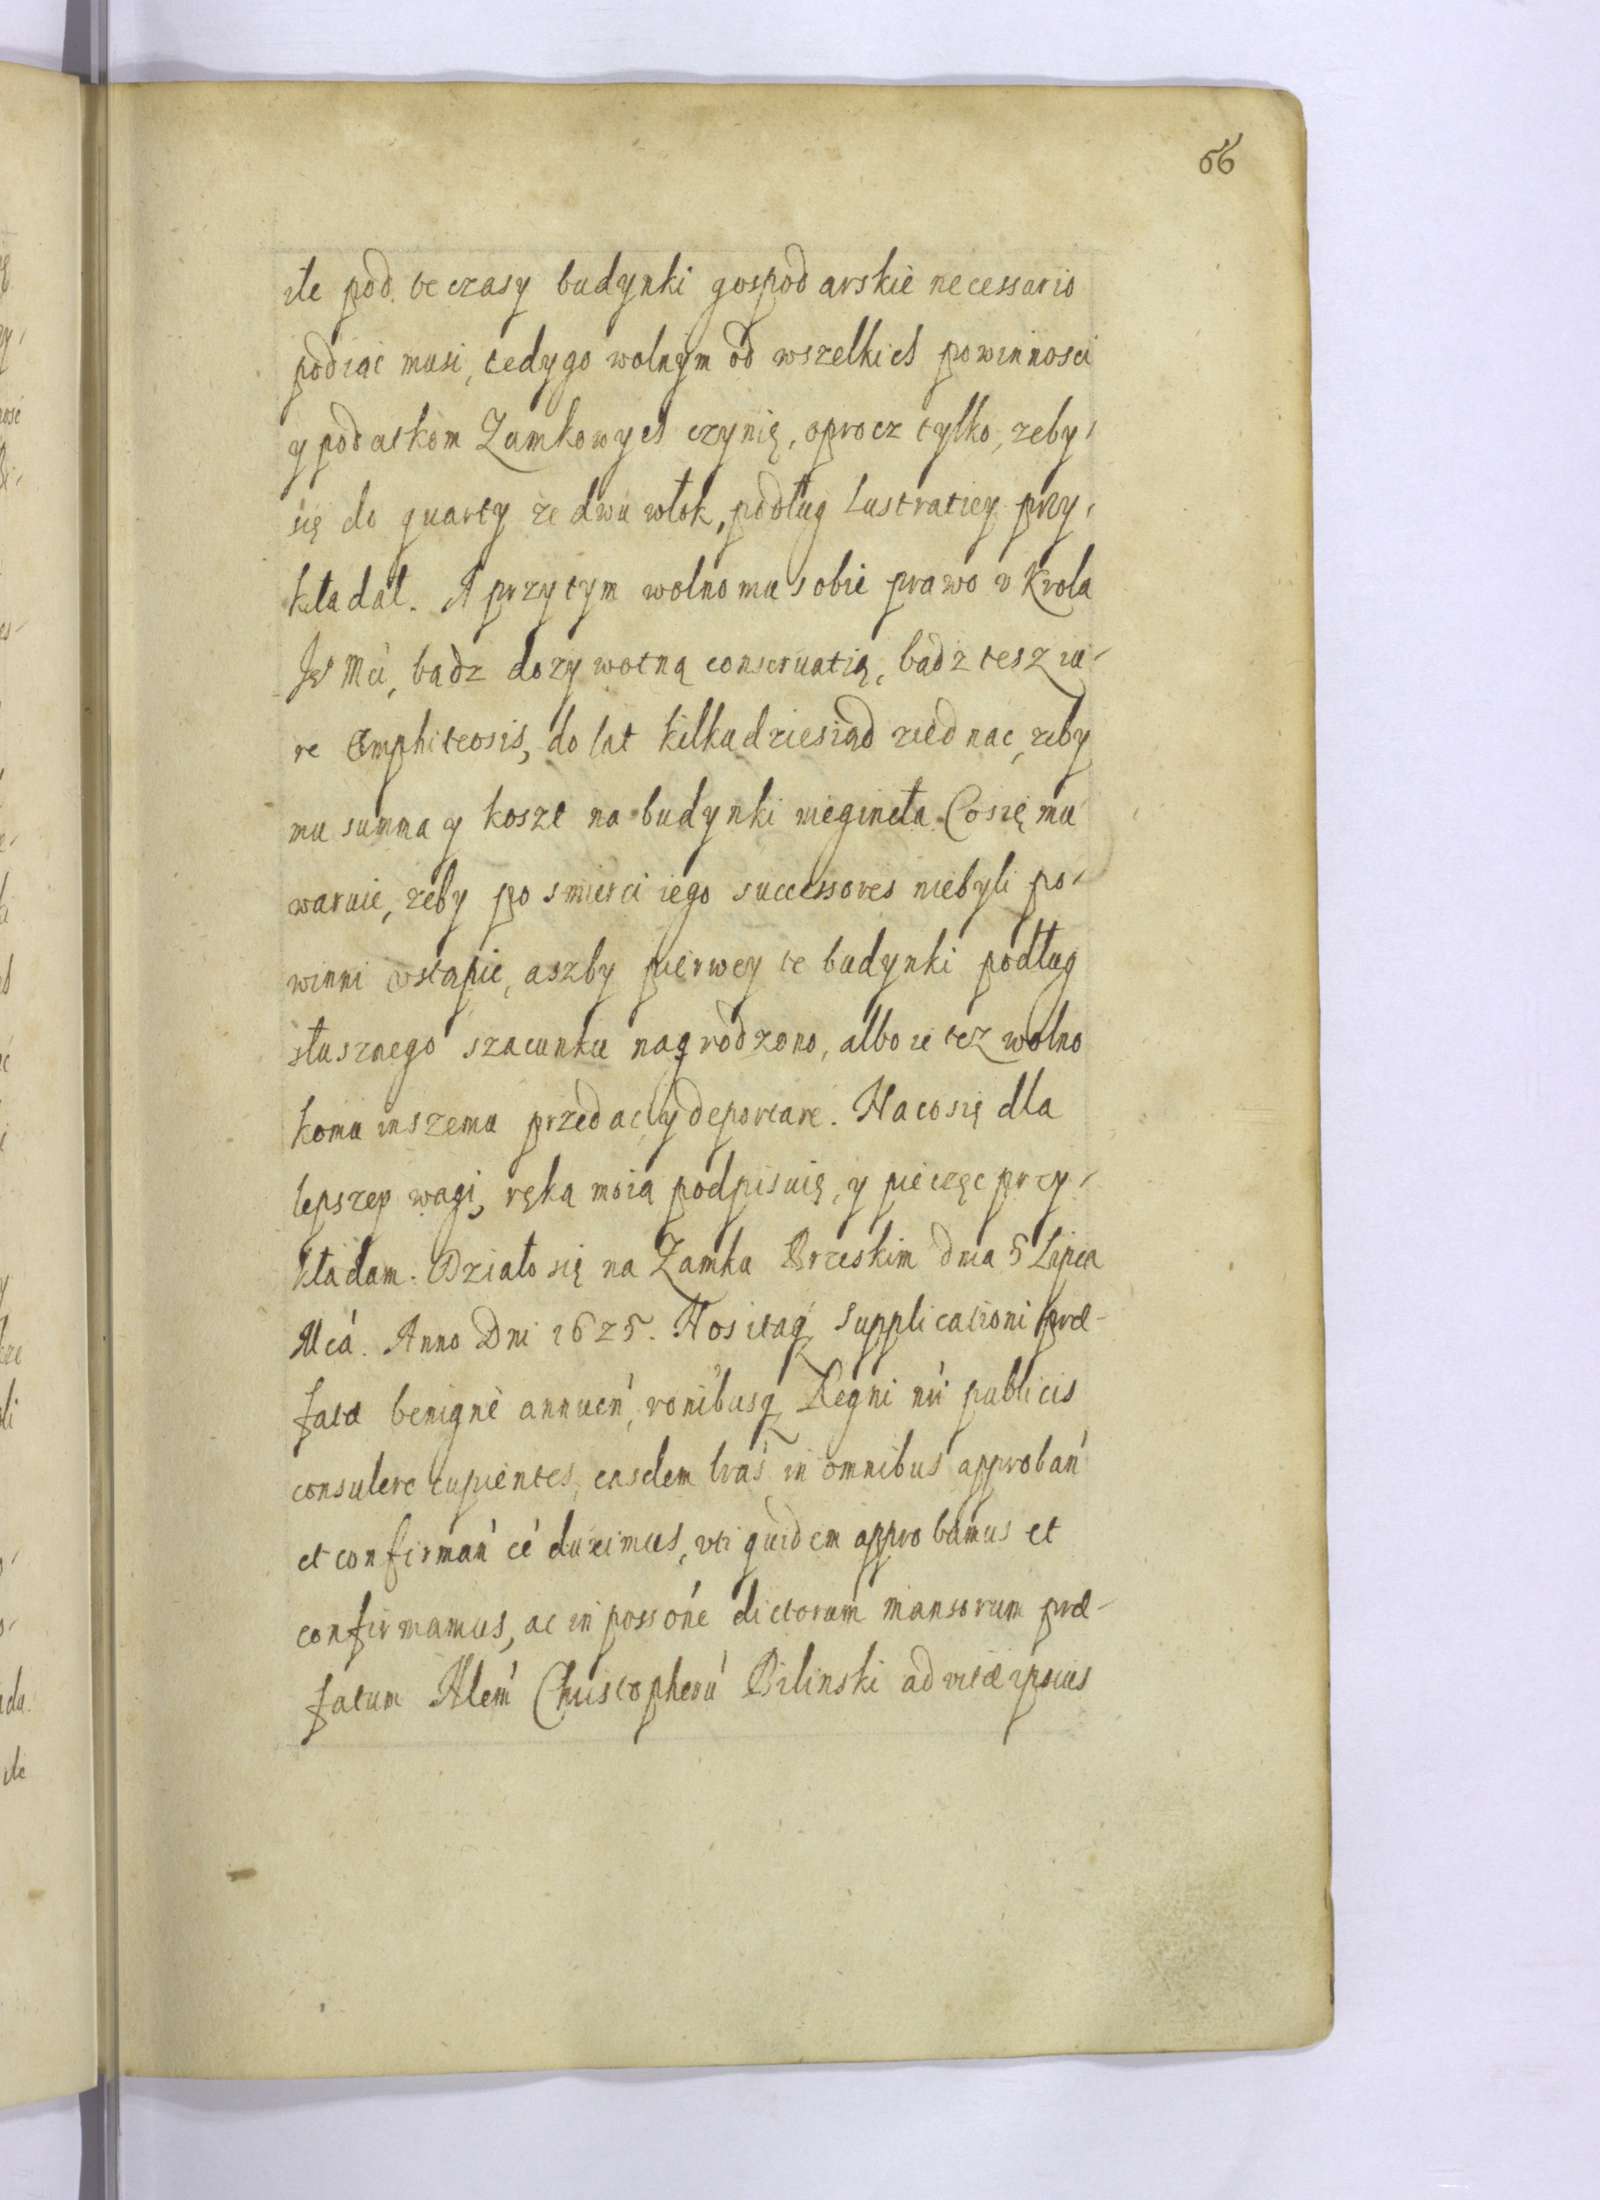 66
ile pod te czasy budynki gospodarskie necessario
podiąć musi, tedy go wolnym od wszelkich powinnosci
y podatkom Zamkowych czynię, oprocz tylko, zeby
się do quarty ze dwu włok, podług Lustratiey przy-
kładał. A przytym wolno mu sobie prawo v Krola
Je° Mci, bądz dozywotną conseruatią, bądz tesz iu-
re Emphiteosis, do lat kilkudziesiąd ziednac, zeby
mu summa y koszt na budynki nieginęła. Co się mu
waruie, zeby po smierci iego successores niebyli po-
winni vstąpic, aszby pierwey te budynki podług
słusznego szacunku nagrodzono, albo ie tez wolno
komu inszemu przedac, y deportare. Na co się dla
lepszey wagi, ręką moią podpisuię, y pieczęc przy-
kładam. Działo się na Zamku Brzeskim dnia 5 Lipca
Mcá. Anno Dni 1625. Nos itaq supplicationi præ-
fatæ benignè annueń, ronibusq Regni nri publicis
consulere cupientes, easdem lrás in omnibus approbań
et confirmań eé duximus, vti quidem approbamus et
confirmamus, ac in possóne dictorum mansorum præ-
fatum Nlem Christopherú Bilinski ad vitæ ipsius